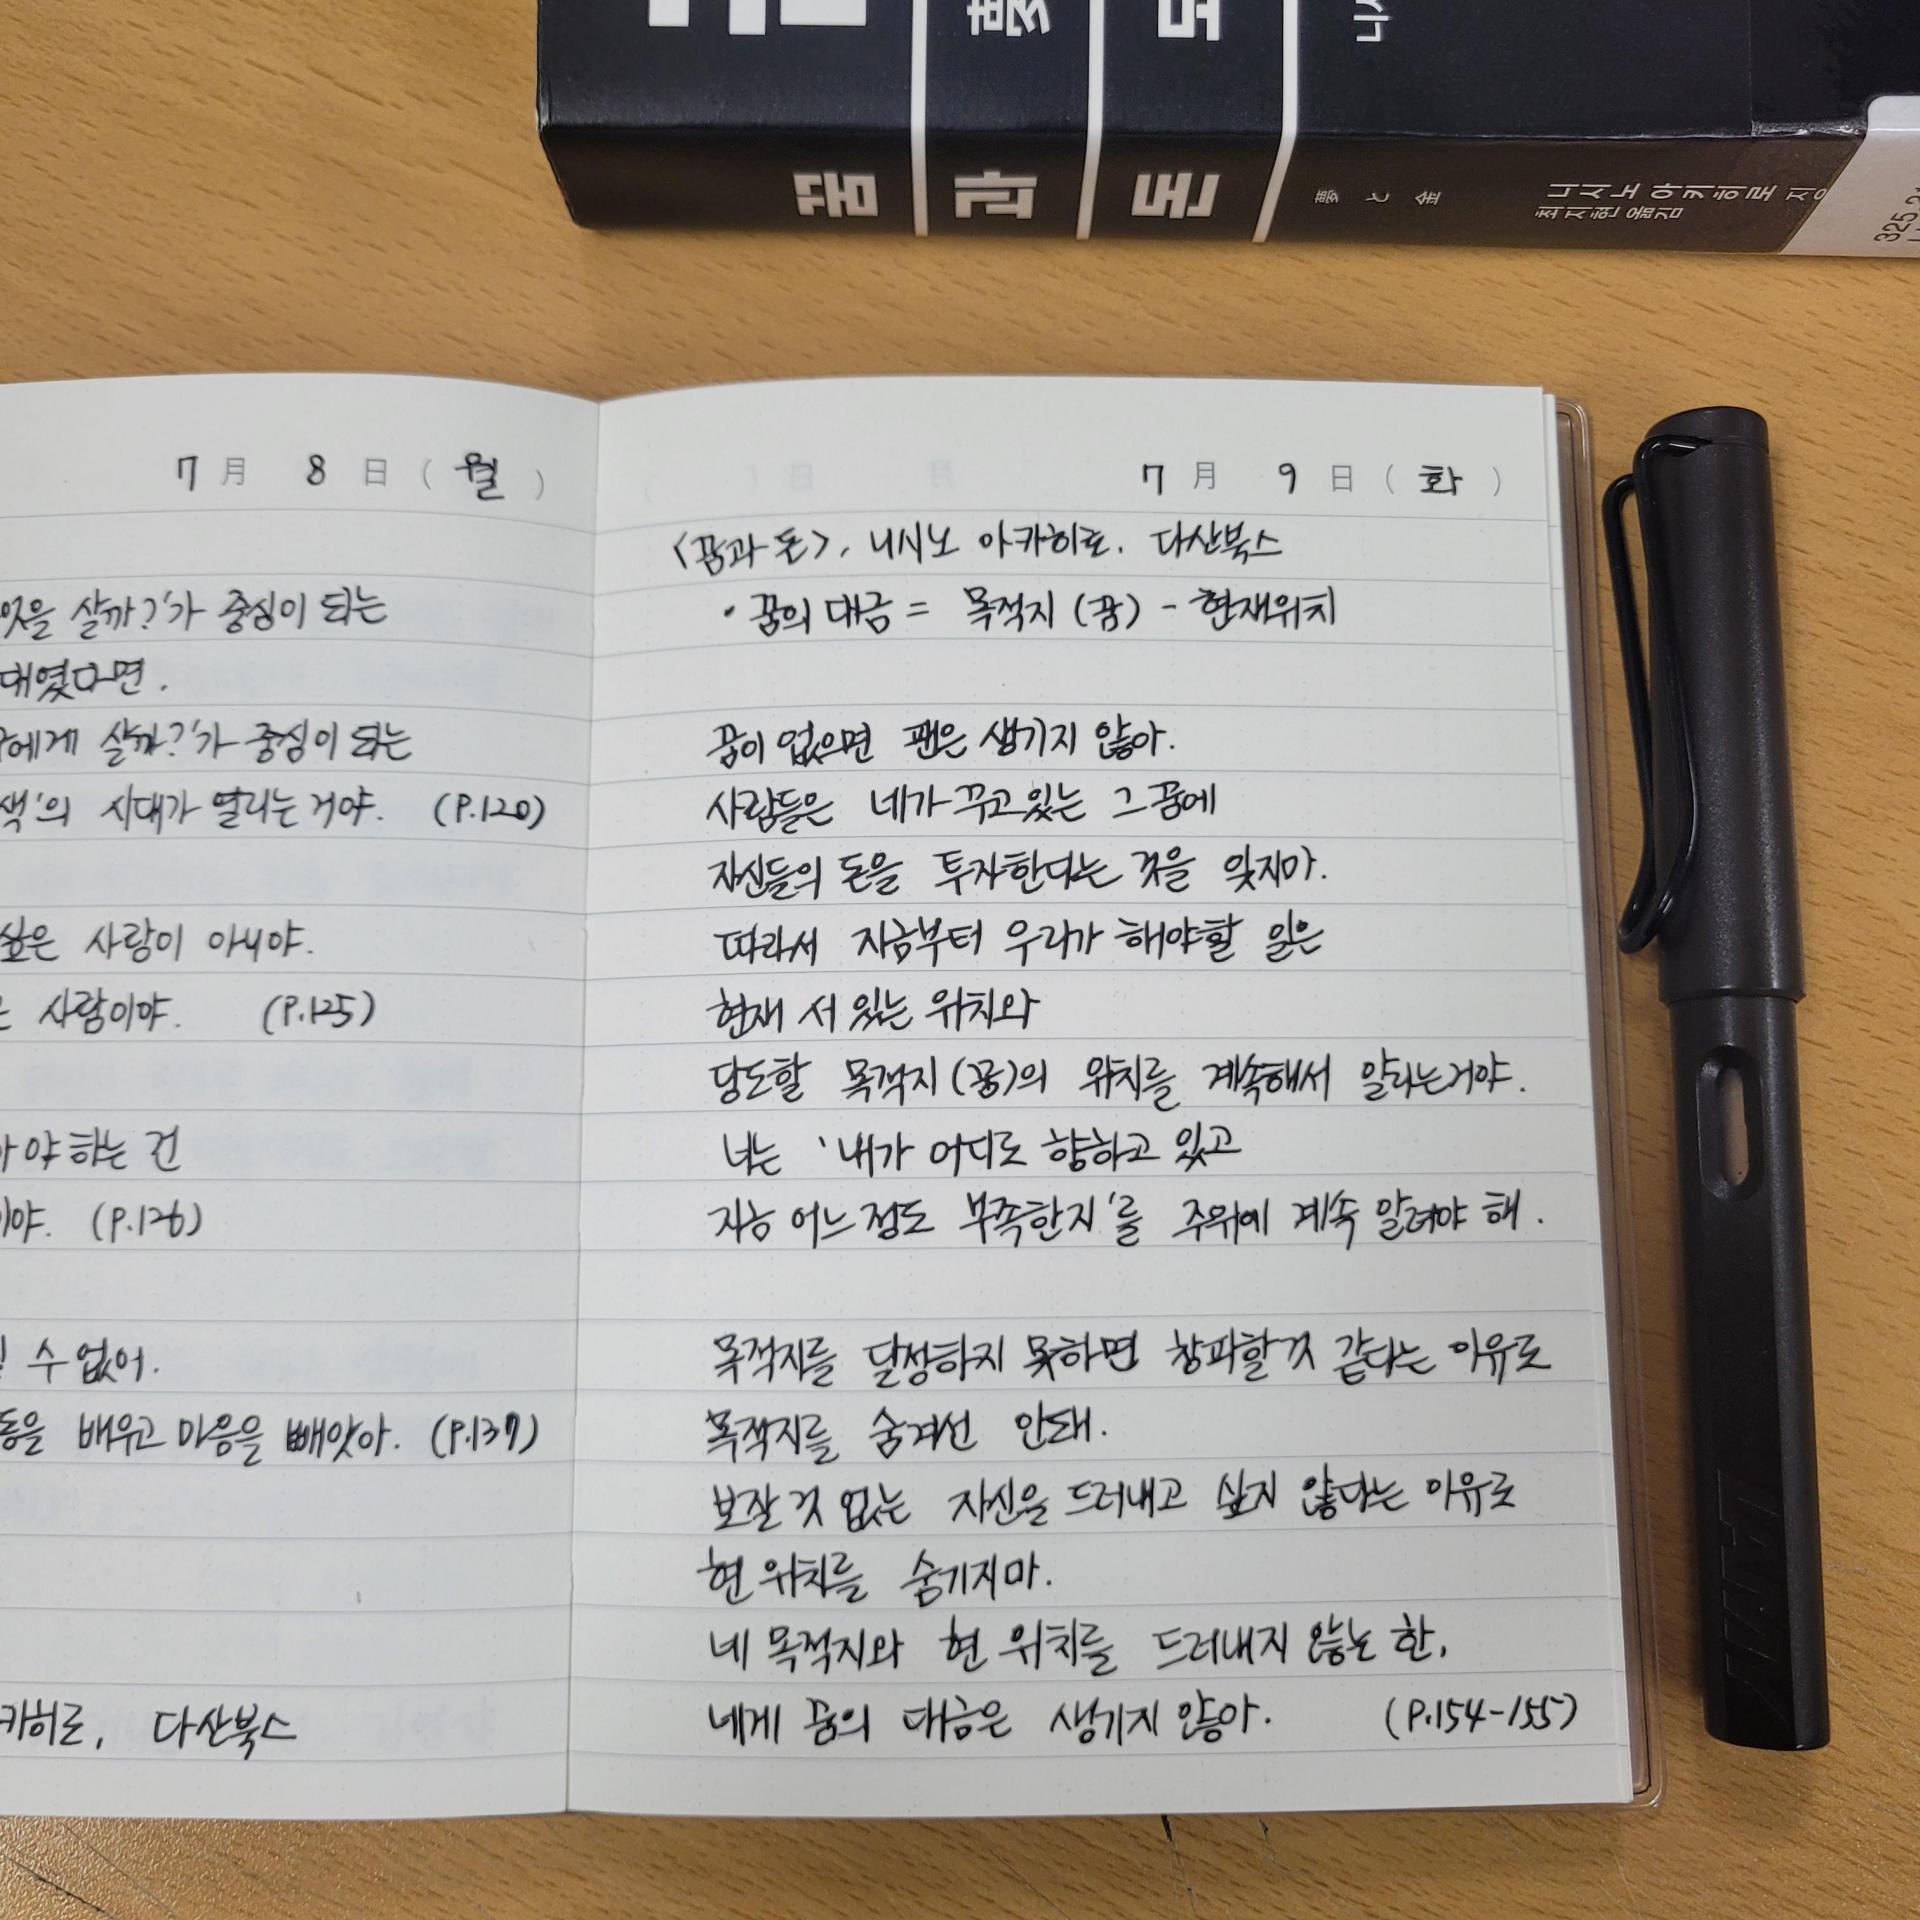 꿈 과 돈 夢 と 金 니시노 아키히로 지음
최지현 옮김
325.2
7 月 8 日 ( 월 )
엇을 살까?'가 중심이 되는
대였다면.
에게 살까?'가 중심이 되는
색'의 시대가 열리는거야. (P.120)
싶은 사람이 아니야.
사람이야. (P.125)
야하는 건
이야. (P.126)
수 없어.
동을 배우고 마음을 빼앗아. (P.137)
카히로, 다산북스
7 月 9 日 ( 화 )
<꿈과 돈>, 니시노 아카히로. 다산북스
• 꿈의 대금 = 목적지 (꿈) - 현재위치
꿈이 없으면 팬은 생기지 않아.
사람들은 네가 꾸고있는 그 꿈에
자신들의 돈을 투자한다는 것을 잊지마.
따라서 지금부터 우리가 해야할 일은
현재 서 있는 위치와
당도할 목적지(꿈)의 위치를 계속해서 알리는거야.
너는 '내가 어디로 향하고 있고
지금 어느 정도 부족한지'를 주위에 계속 알려야 해.
목적지를 달성하지 못하면 창피할것 같다는 이유로
목적지를 숨겨선 안돼.
보잘 것 없는 자신을 드러내고 싶지 않다는 이유로
현 위치를 숨기지마.
네 목적지와 현 위치를 드러내지 않는 한,
네게 꿈의 대금은 생기지 않아. (P.154-155)
LAMY